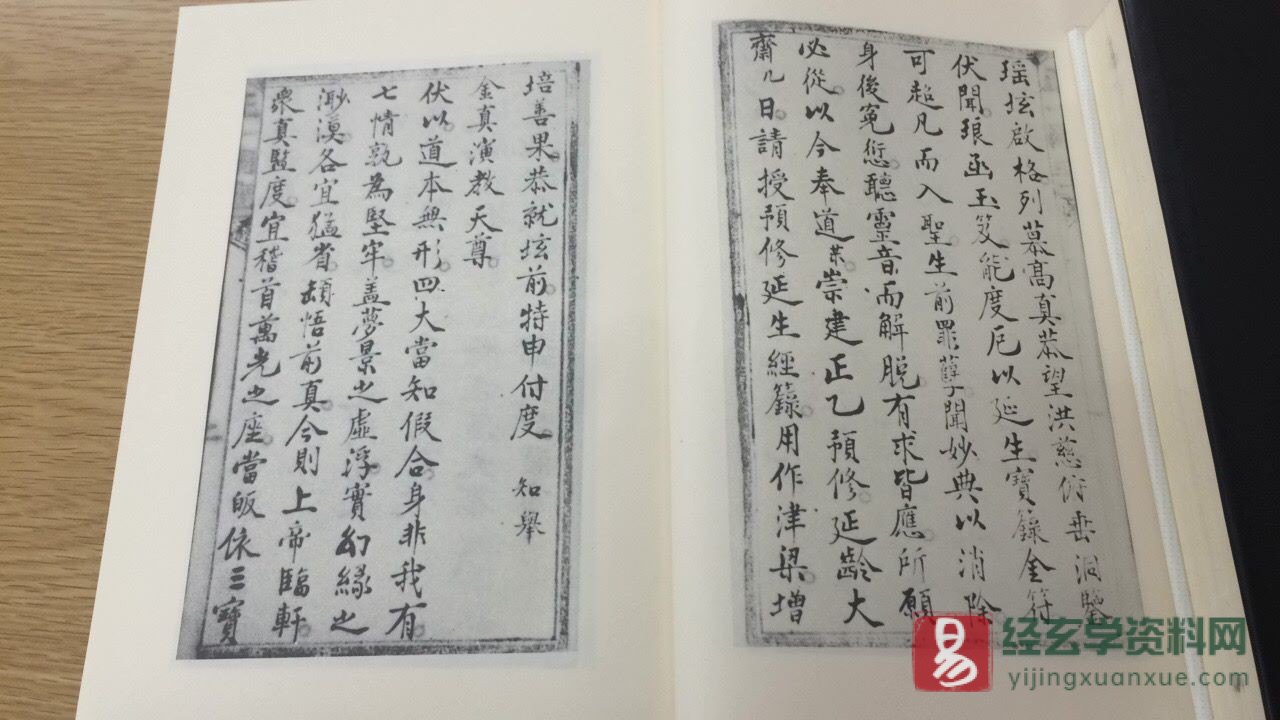 瑶垓啟格列慕髙真恭望洪慈俯垂洞鑒
伏聞琅函玉笈能度厄以延生寶籙金符
可超凡而入聖生前罪孽聞妙典以消除
身後冤愆聽靈音而解脱有求皆應所願
必從以今奉道某崇建正乙預修延齡大
齋几日請授預修延生經籙用作津梁增
培善果恭就垓前特申付度 知舉
金真演教天尊
伏以道本無形四大當知假合身非我有
七情孰為堅牢盖夢景之虛浮實幻緣之
渺漠各宜猛省頓悟前真今則上帝臨軒
衆真監度宜稽首萬光之座當皈依三寶
易
经玄学资料网
yijingxuanxue.com